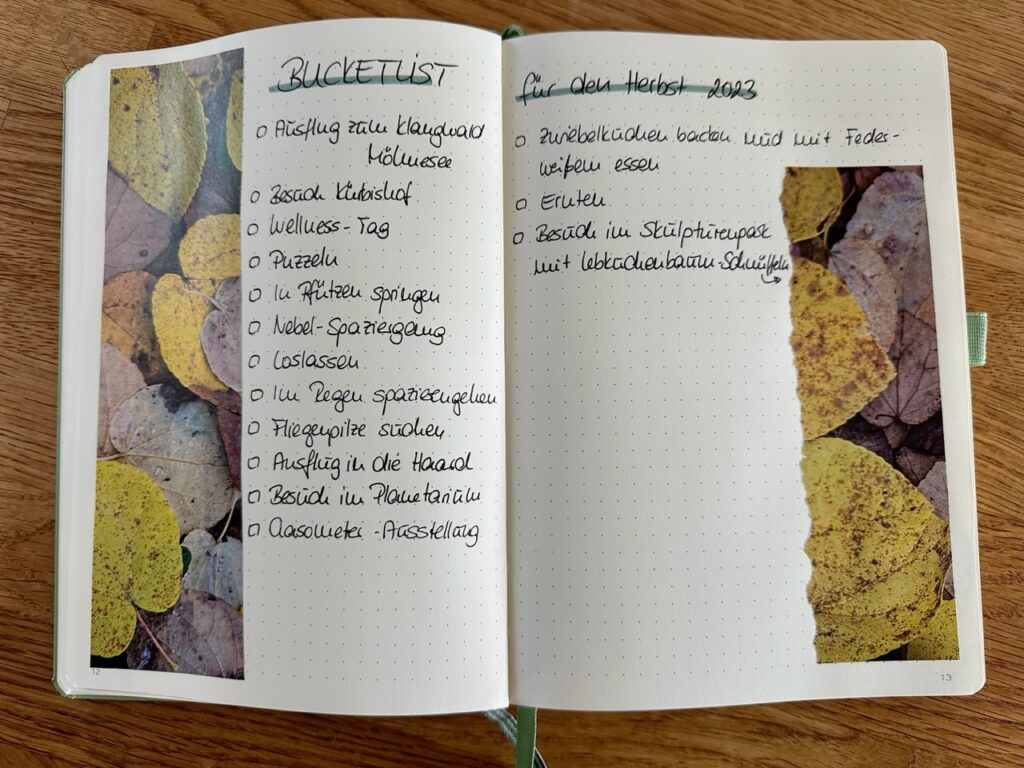 BUCKETLIST
o Ausflug zum Klangwald
Möhnesee
o Besuch Kürbishof
o Wellness-Tag
o Puzzeln
o In Pfützen springen
o Nebel-Spaziergang
o Loslassen
o Im Regen spazierengehen
o Fliegenpilze suchen
o Ausflug in die Haard
o Besuch im Planetarium
o Gasometer-Ausstellung
12
für den Herbst 2023
o Zwiebelkuchen backen und mit Feder-
weißem essen
o Ernten
o Besuch im Skulpturenpark
mit Lebkuchenbaum-Schnüffeln
13